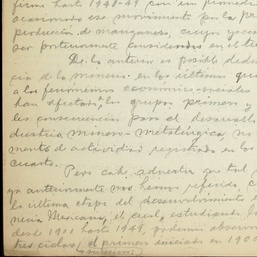 firma hasta 1948-49 con un promedio
ocasionado ese movimiento por la pr
producción de manganeso, cuyo yacim
ser posteriormente considerados en el te
De lo anterior es posible dedu
cia de la minería en los últimos qu
a los fenómenos económico-sociales
han afectado los grupos primero y
les consecuencias para el desarrollo
dustria minero-metalúrgica, no
mento de actividad registrado en los
cuarto.
Pero cabe advertir que tal y
ya anteriormente nos hemos referido, c
la última etapa del desenvolvimiento
nería Mexicana, el cual, estudiando
desde 1900 hasta 1948, podemos observar
tres ciclos; el primero iniciado en 1900